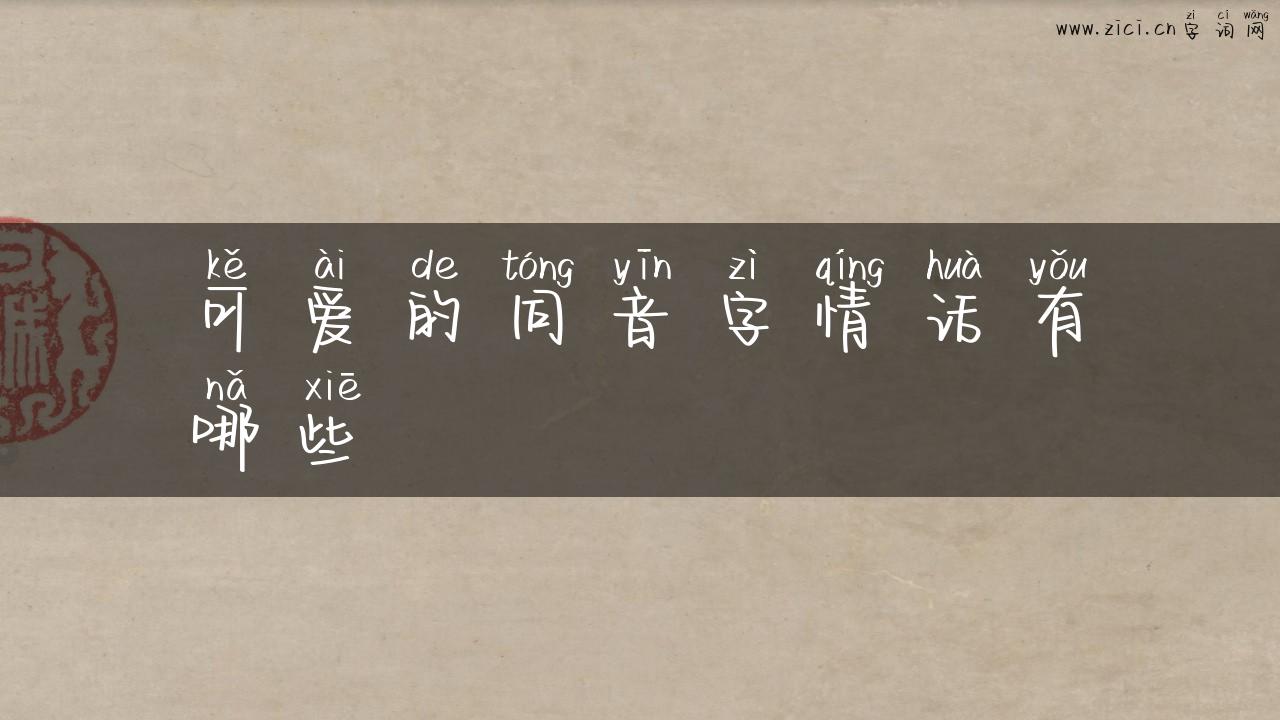 zì cí wǎng
www.zici.cn 字词网
kě ài de tóng yīn zì qíng huà yǒu
可爱的同音字情话有
nǎ xiē
哪些